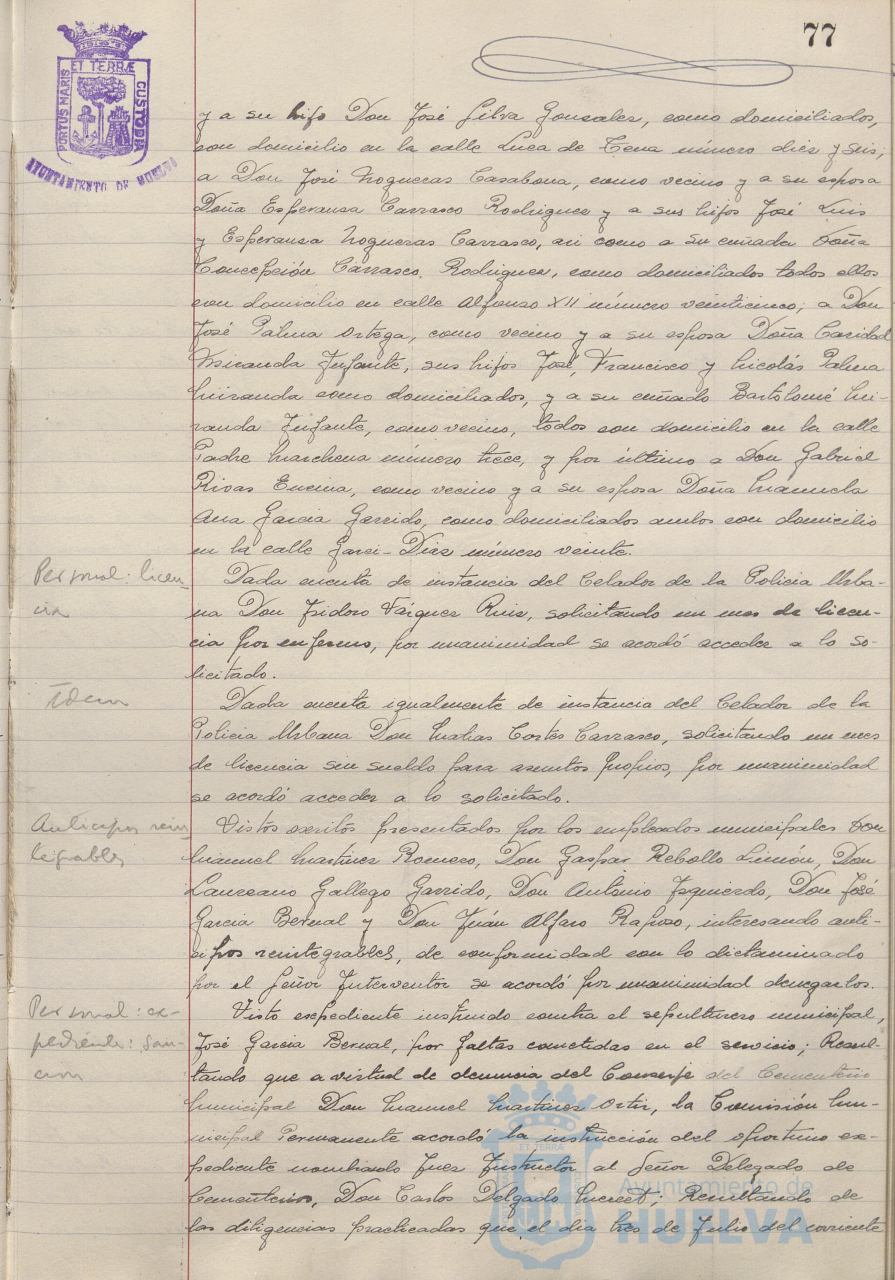 77
PORTUS MARIS ET TERRÆ CUSTODIA
AYUNTAMIENTO DE HUELVA
y a su hijo Don José Silva Gonzalez, como domiciliados,
con domicilio en la calle Luca de Tena número diez y seis;
a Don José Nogueras Casabona, como vecino y a su esposa
Doña Esperanza Carrasco Rodriguez y a sus hijos José Luis
y Esperanza Nogueras Carrasco, asi como a su cuñada Doña
Concepción Carrasco Rodriguez, como domiciliados todos ellos
con domicilio en calle Alfonso XII número veinticinco; a Don
José Palma Ortega, como vecino y a su esposa Doña Caridad
Miranda Infante, sus hijos José, Francisco y Nicolás Palma
Miranda como domiciliados, y a su cuñado Bartolomé Mi-
randa Infante, como vecino, todos con domicilio en la calle
Padre Marchena número trece, y por último a Don Gabriel
Rivas Encina, como vecino y a su esposa Doña Manuela
Ana Garcia Garrido, como domiciliados ambos con domicilio
en la calle Garci-Diaz número veinte.
Personal: licen-
cia
Dada cuenta de instancia del Celador de la Policia Urba-
na Don Isidoro Vázquez Ruiz, solicitando un mes de licen-
cia por enfermo, por unanimidad se acordó acceder a lo so-
licitado.
Idem
Dada cuenta igualmente de instancia del Celador de la
Policia Urbana Don Matias Cortés Carrasco, solicitando un mes
de licencia sin sueldo para asuntos propios, por unanimidad
se acordó acceder a lo solicitado.
Anticipos rein-
tegrables
Vistos escritos presentados por los empleados municipales Don
Manuel Martinez Romero, Don Gaspar Rebollo Limón, Don
Laureano Gallego Garrido, Don António Izquierdo, Don José
Garcia Bernal y Don Juán Alfaro Raposo, interesando anti-
cipos reintegrables, de conformidad con lo dictaminado
por el Señor Interventor se acordó por unanimidad denegarlos.
Personal: ex-
pediente: san-
cion
Visto expediente instruido contra el sepulturero municipal,
José Garcia Bernal, por faltas cometidas en el servicio; Resul-
tando que a virtud de denuncia del Conserje del Cementerio
Municipal Don Manuel Martinez Ortiz, la Comisión Mu-
nicipal Permanente acordó la instrucción del oportuno ex-
pediente nombrando Juez Instructor al Señor Delegado de
Cementerios, Don Carlós Delgado; Resultando de
las diligencias practicadas que el dia tres de Julio del corriente
Ayuntamiento de
HUELVA